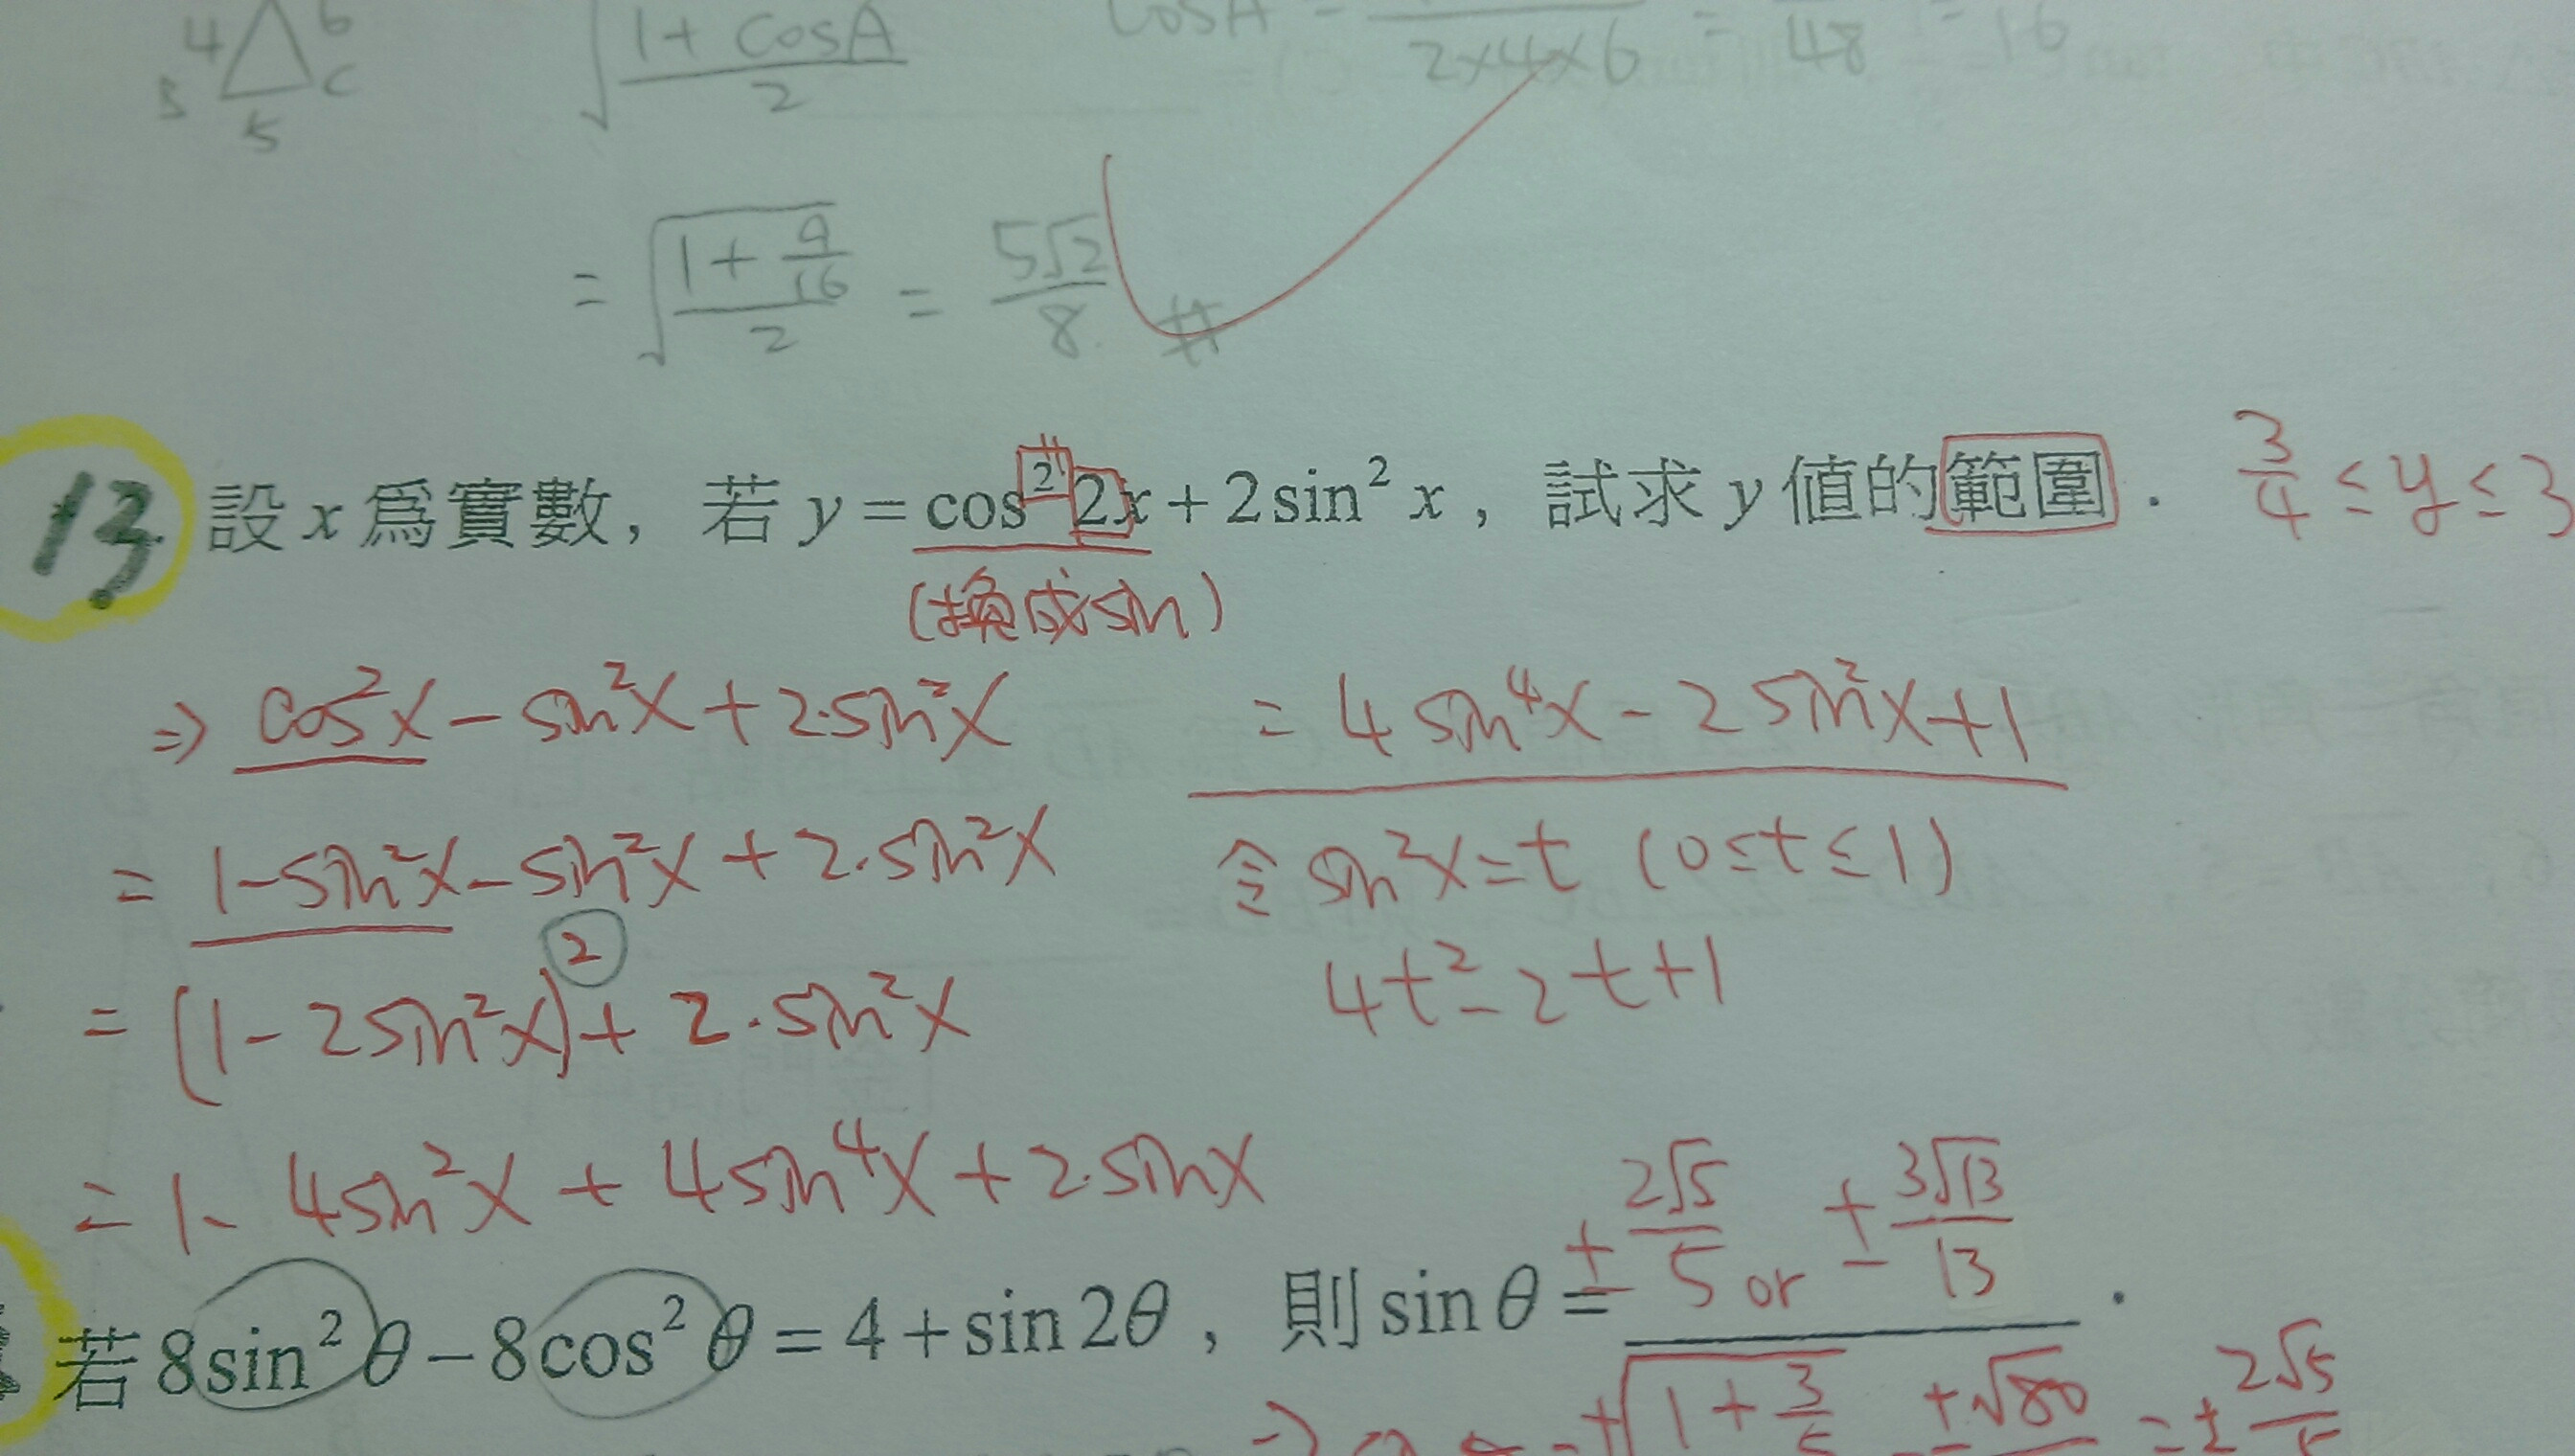 4 6
B 5 C
√((1+cosA)/2)
cosA = /(2×4×6) = /48 = /16
= √((1+9/16)/2) = 5√2/8 #
13. 設 x 為實數，若 y = cos² 2x + 2 sin² x，試求 y 值的範圍． 3/4 ≤ y ≤ 3
(換成sin)
⇒ cos²x - sin²x + 2·sin²x
= 1-sin²x - sin²x + 2·sin²x
= (1-2sin²x)² + 2·sin²x
= 1 - 4sin²x + 4sin⁴x + 2·sinx
= 4sin⁴x - 2sin²x + 1
令 sin²x = t (0≤t≤1)
4t² - 2t + 1
若 8sin² θ − 8cos² θ = 4 + sin 2θ，則 sin θ = ± 2√5/5 or ± 3√13/13．
± √(1+3/5 ±√80 = ± 2√5/5